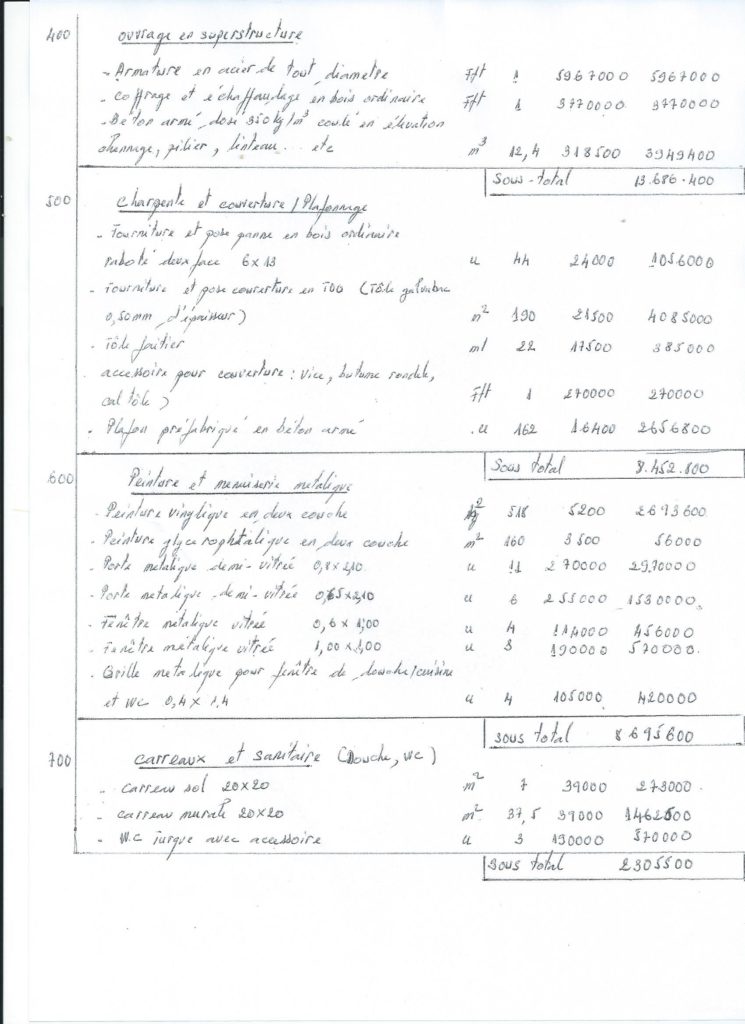 400 ouvrage en superstructure
- Armature en acier de tout diametre Fft 1 5967000 5967000
- coffrage et échaffaudage en bois ordinaire Fft 1 3770000 3770000
- Béton armé dosé 350kg/m³ coulé en élévation
chennage, pilier, linteau... etc m³ 12,4 318500 3949400
Sous-total 13.686.400
500 Chargente et couverture / Plafonnage
- Fourniture et pose panne en bois ordinaire
raboté deux face 6x13 u 44 24000 1056000
- Fourniture et pose couverture en TOG (Tôle galvanise
0,50mm d'épaisseur) m² 190 21500 4085000
- Tôle faitier ml 22 17500 385000
accessoire pour couverture : vice, butume rondele,
cal tôle) Fft 1 270000 270000
- Plafon préfabriqué en béton armé u 162 16400 2656800
Sous total 8.452.800
600 Peinture et menuiserie metalique
- Peinture vinylique en deux couche m² 518 5200 2693600
- Peinture glycerophtalique en deux couche m² 160 3500 56000
- Porte metalique demi-vitreé 0,8x2,10 u 11 270000 2970000
- Porte metalique demi-vitreé 0,65x2,10 u 6 255000 1530000
- Fenêtre metalique vitreé 0,6 x 1,00 u 4 114000 456000
- Fenêtre métalique vitreé 1,00 x 1,00 u 3 190000 570000
- Grille metalique pour fenêtre de douche/cuisine
et WC 0,4 x 1,4 u 4 105000 420000
sous total 8695600
700 carreaux et sanitaire (Douche, wc)
- carreau sol 20x20 m² 7 39000 273000
- carreau murale 20x20 m² 37,5 39000 1462500
- W.C Turque avec accessoire u 3 190000 570000
sous total 2305500